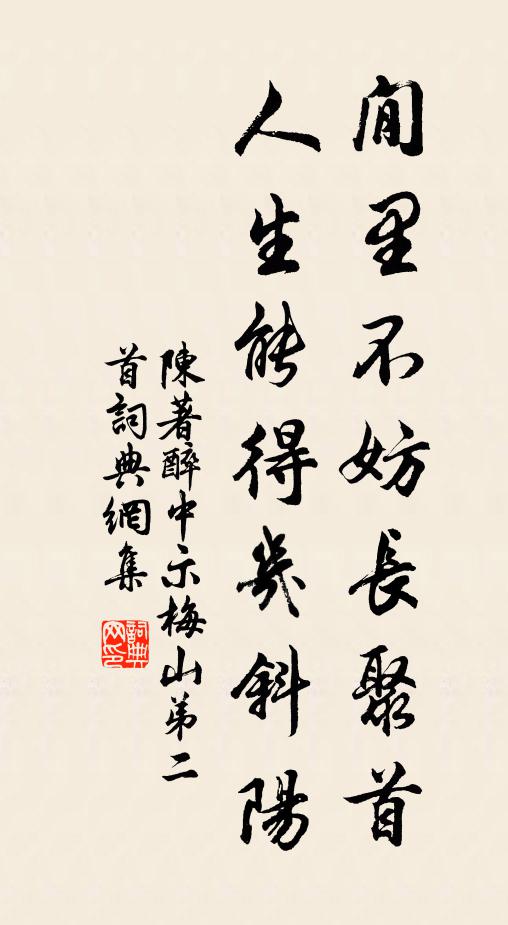 閒里不妨長聚首
人生能得幾斜陽
陳著醉中示梅山弟二
首詞典網集
詞典网印